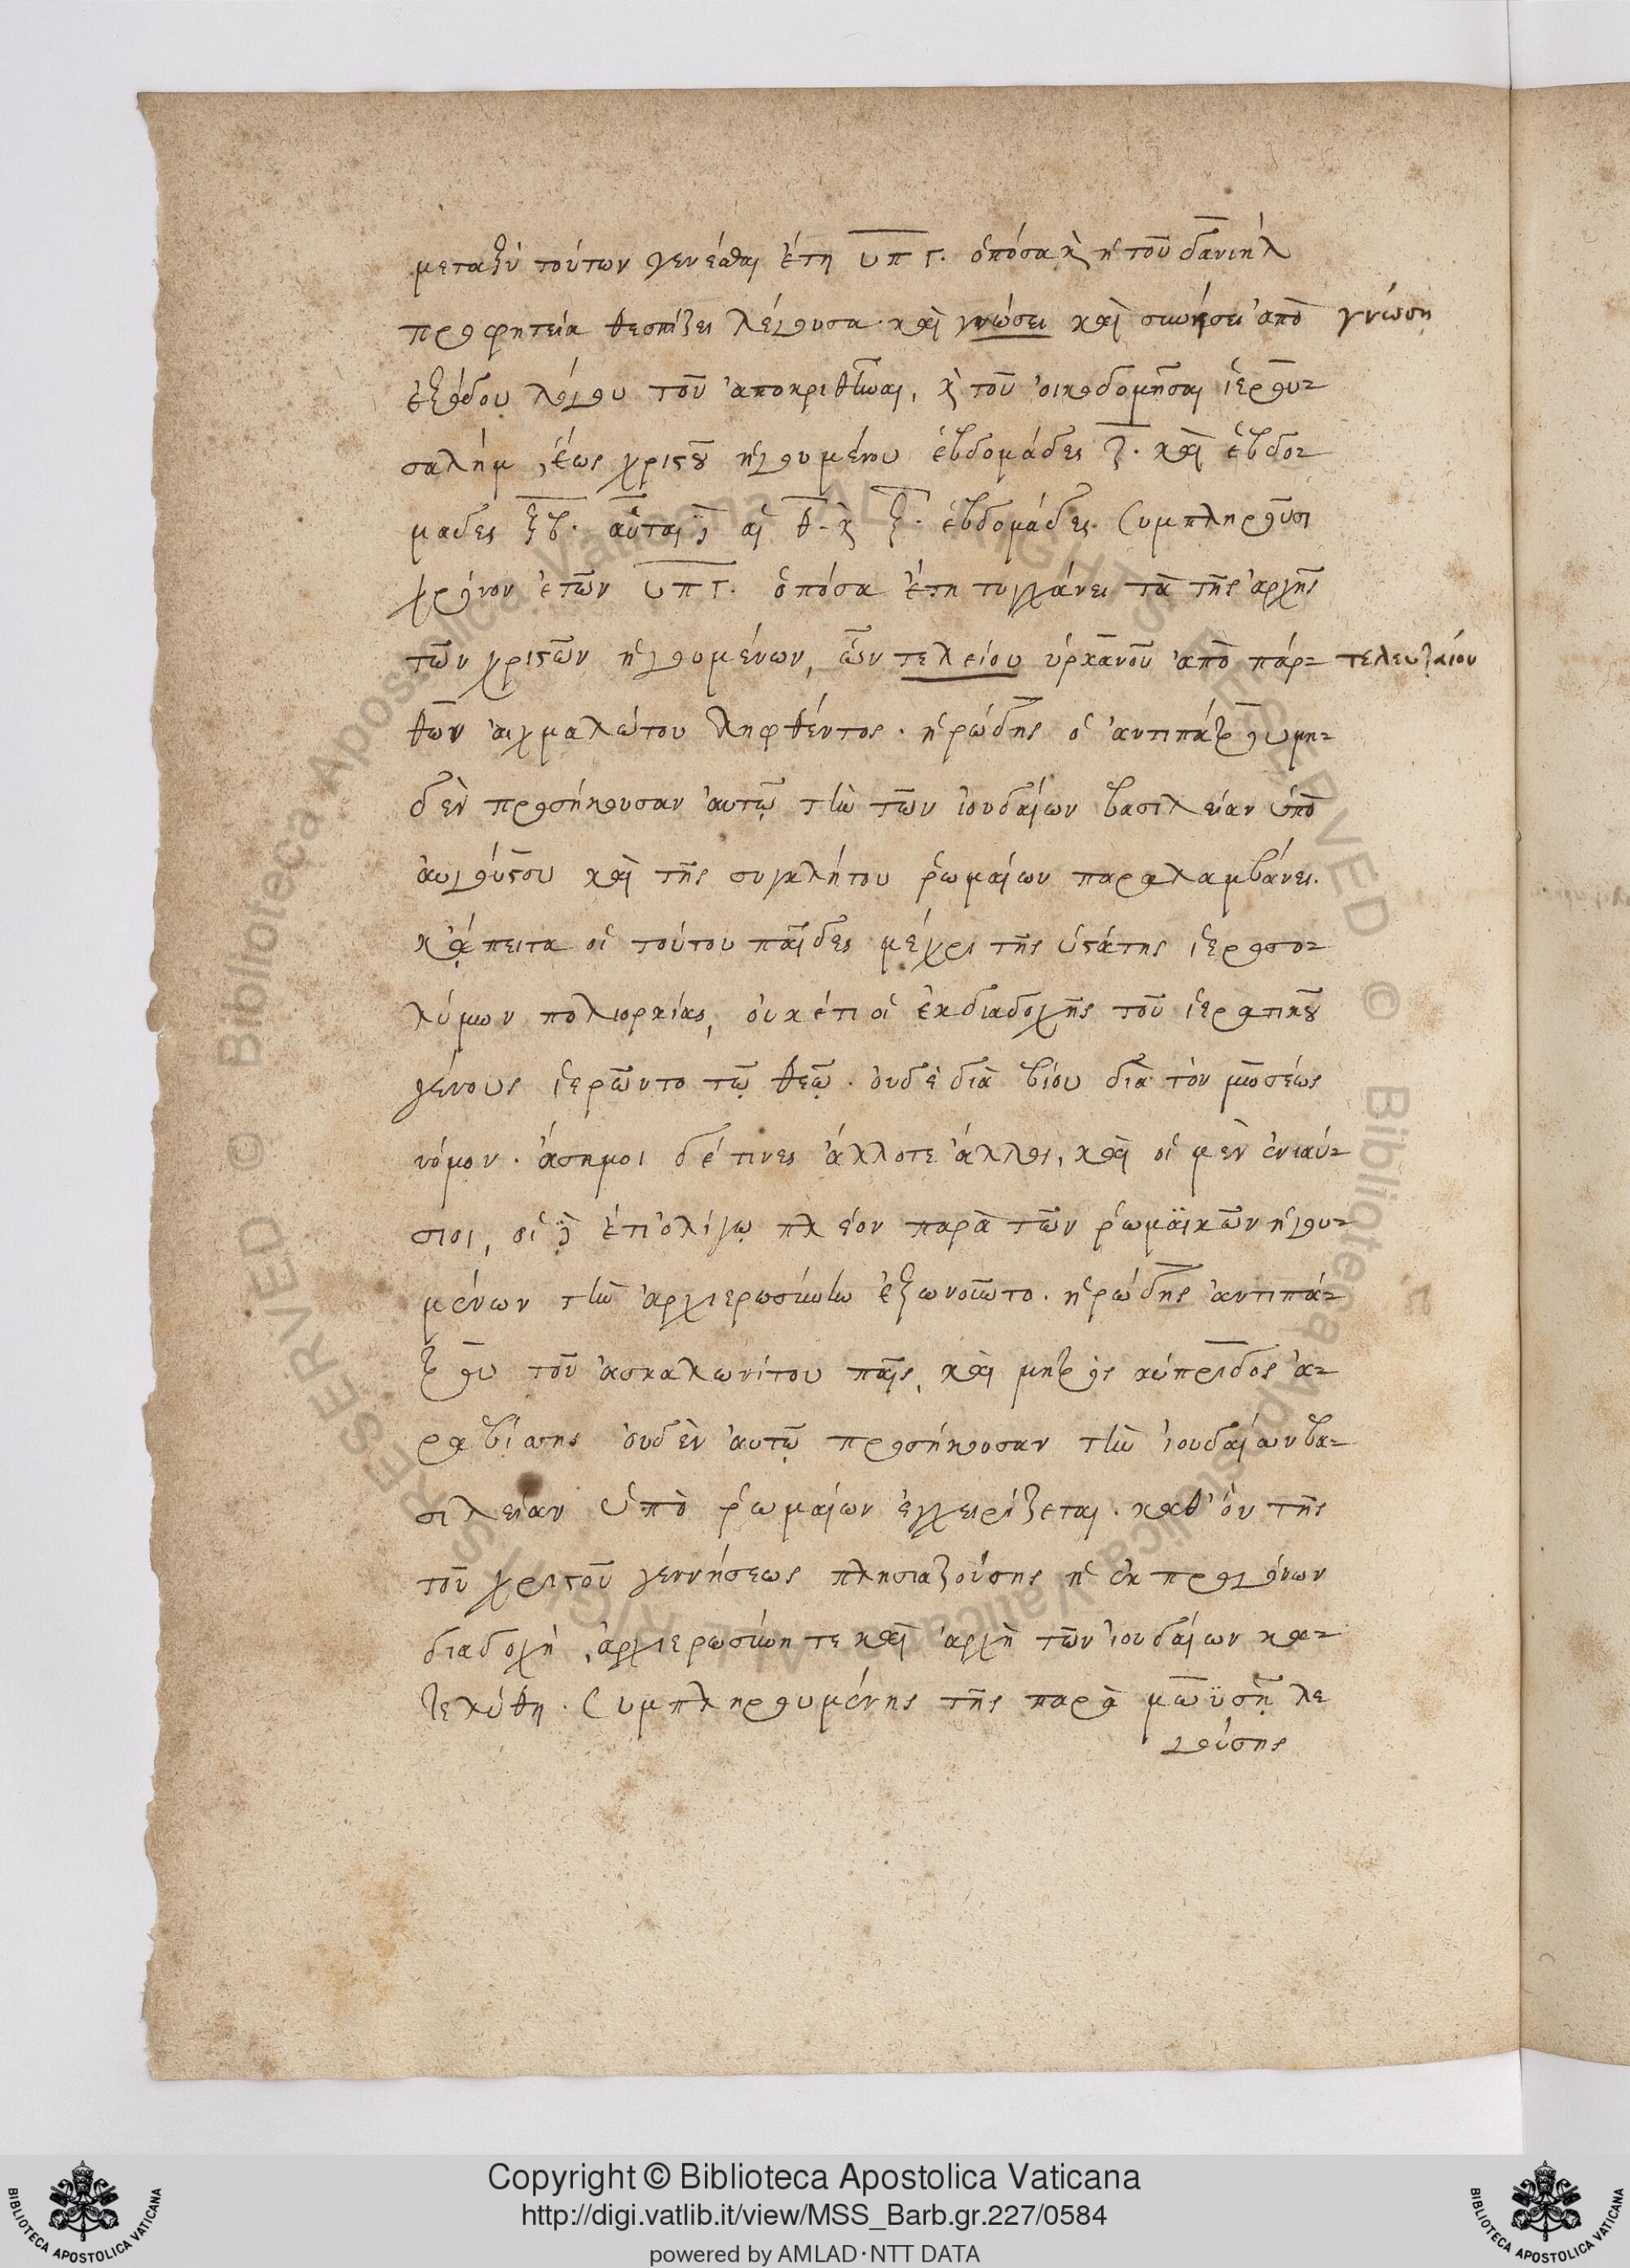 μεταξὺ τούτων γενέσθαι ἔτη υπγ. ὁπόσα κ̀ ἡ τοῦ δανιὴλ
προφητεία θεσπίζει λέγουσα· καὶ γνώσει καὶ συνήσει ἀπὸ γνώση
ἐξόδου λόγου τοῦ ἀποκριθῆναι, κ̀ τοῦ οἰκοδομῆσαι ἱερου-
σαλὴμ, ἕως χριστοῦ ἡγουμένου ἑβδομάδες ζ. καὶ ἑβδο-
μαδες ξβ. αὗται δὲ αἱ θ. κ̀ ξ. ἑβδομάδες. συμπληροῦσι
χρόνον ἐτῶν υπγ. ὁπόσα ἔτη τυγχάνει τὰ τῆς ἀρχῆς
τῶν χριστῶν ἡγουμένων, ὧν τελείου ὑρκανοῦ ἀπὸ πάρ- τελευταίου
θων αἰχμαλώτου ληφθέντος. ἡρώδης ὁ ἀντιπάτρου μη-
δὲν προσήκουσαν αὐτῷ τὴν τῶν ἰουδαίων βασιλείαν ὑπὸ
ἀυγούστου καὶ τῆς συγκλήτου ῥωμαίων παραλαμβάνει.
κᾄπειτα οἱ τούτου παῖδες μέχρι τῆς ὑστάτης ἱεροσο-
λύμων πολιορκίας, ὀυκέτι οἱ ἐκ διαδοχῆς τοῦ ἱερατικοῦ
γένους ἱερῶντο τῷ θεῷ. ὀυδὲ διὰ βίου διὰ τὸν μωσέως
νόμον. ἄσημοι δέ τινες ἄλλοτε ἄλλοι, καὶ οἱ μὲν ἐνιαύ-
σιοι, οἱ δὲ ἔτι ὀλίγῳ πλέον παρὰ τῶν ῥωμαϊκῶν ἡγου-
μένων τὴν ἀρχιερωσύνην ἐξωνοῦντο. ἡρώδης ἀντιπά-
τρου τοῦ ἀσκαλωνίτου παῖς, καὶ μητρὸς κύπριδος ἀ-
ραβίσσης ὀυδὲν ἀυτῷ προσήκουσαν τὴν ἰουδαίων βα-
σιλείαν ὑπὸ ῥωμαίων ἐγχειρίζεται. καθ' ὃν τῆς
τοῦ χριστοῦ γεννήσεως πλησιαζούσης ἡ ἐκ προγόνων
διαδοχὴ, ἀρχιερωσύνη τε καὶ ἀρχὴ τῶν ἰουδαίων κα-
τελύθη. συμπληρουμένης τῆς παρὰ μωϋσῇ λε
γούσης
Copyright © Biblioteca Apostolica Vaticana
http://digi.vatlib.it/view/MSS_Barb.gr.227/0584
powered by AMLAD·NTT DATA